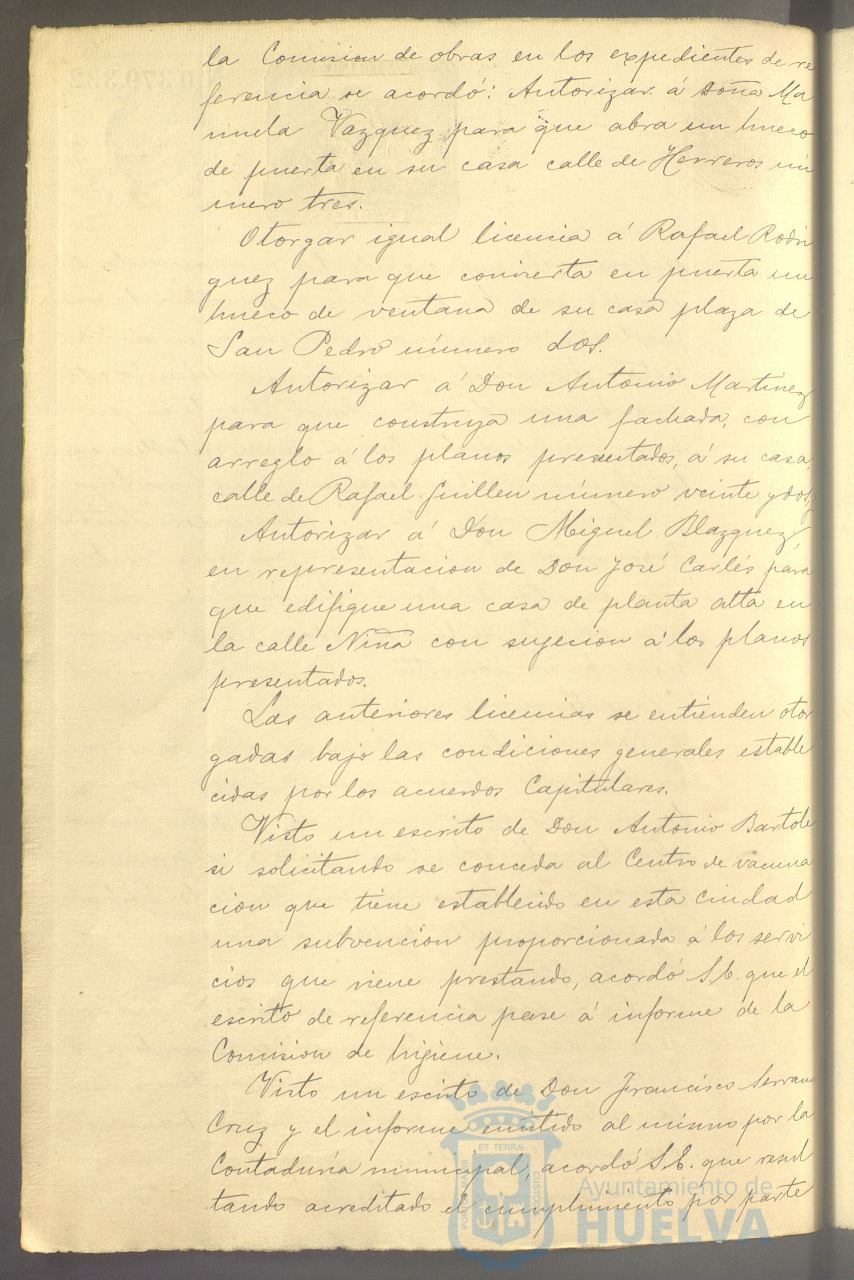 la Comision de obras en los expedientes de re
ferencia se acordó: Autorizar á Doña Ma
nuela Vazquez para que abra un hueco
de puerta en su casa calle de Herreros nú
mero tres.
Otorgar igual licencia á Rafael Rodri
guez para que convierta en puerta un
hueco de ventana de su casa plaza de
San Pedro número dos.
Autorizar á Don Antonio Martinez
para que construya una fachada, con
arreglo á los planos presentados, á su casa,
calle de Rafael Guillen número veinte y dos.
Autorizar á Don Miguel Blazquez,
en representacion de Don José Carlés para
que edifique una casa de planta alta en
la calle Niña con sujecion á los planos
presentados.
Las anteriores licencias se entienden otor
gadas bajo las condiciones generales estable
cidas por los acuerdos Capitulares.
Visto un escrito de Don Antonio Bartole
si solicitando se conceda al Centro de vacuna
cion que tiene establecido en esta ciudad
una subvencion proporcionada á los servi
cios que viene prestando, acordó S.E. que el
escrito de referencia pase á informe de la
Comision de higiene.
Visto un escrito de Don Francisco Serrano
Cruz y el informe emitido al mismo por la
Contaduría municipal, acordó S.E. que resul
tando acreditado el cumplimiento por parte
ET TERRÆ
PORTUS MARIS
CUSTODIA
Ayuntamiento de
HUELVA